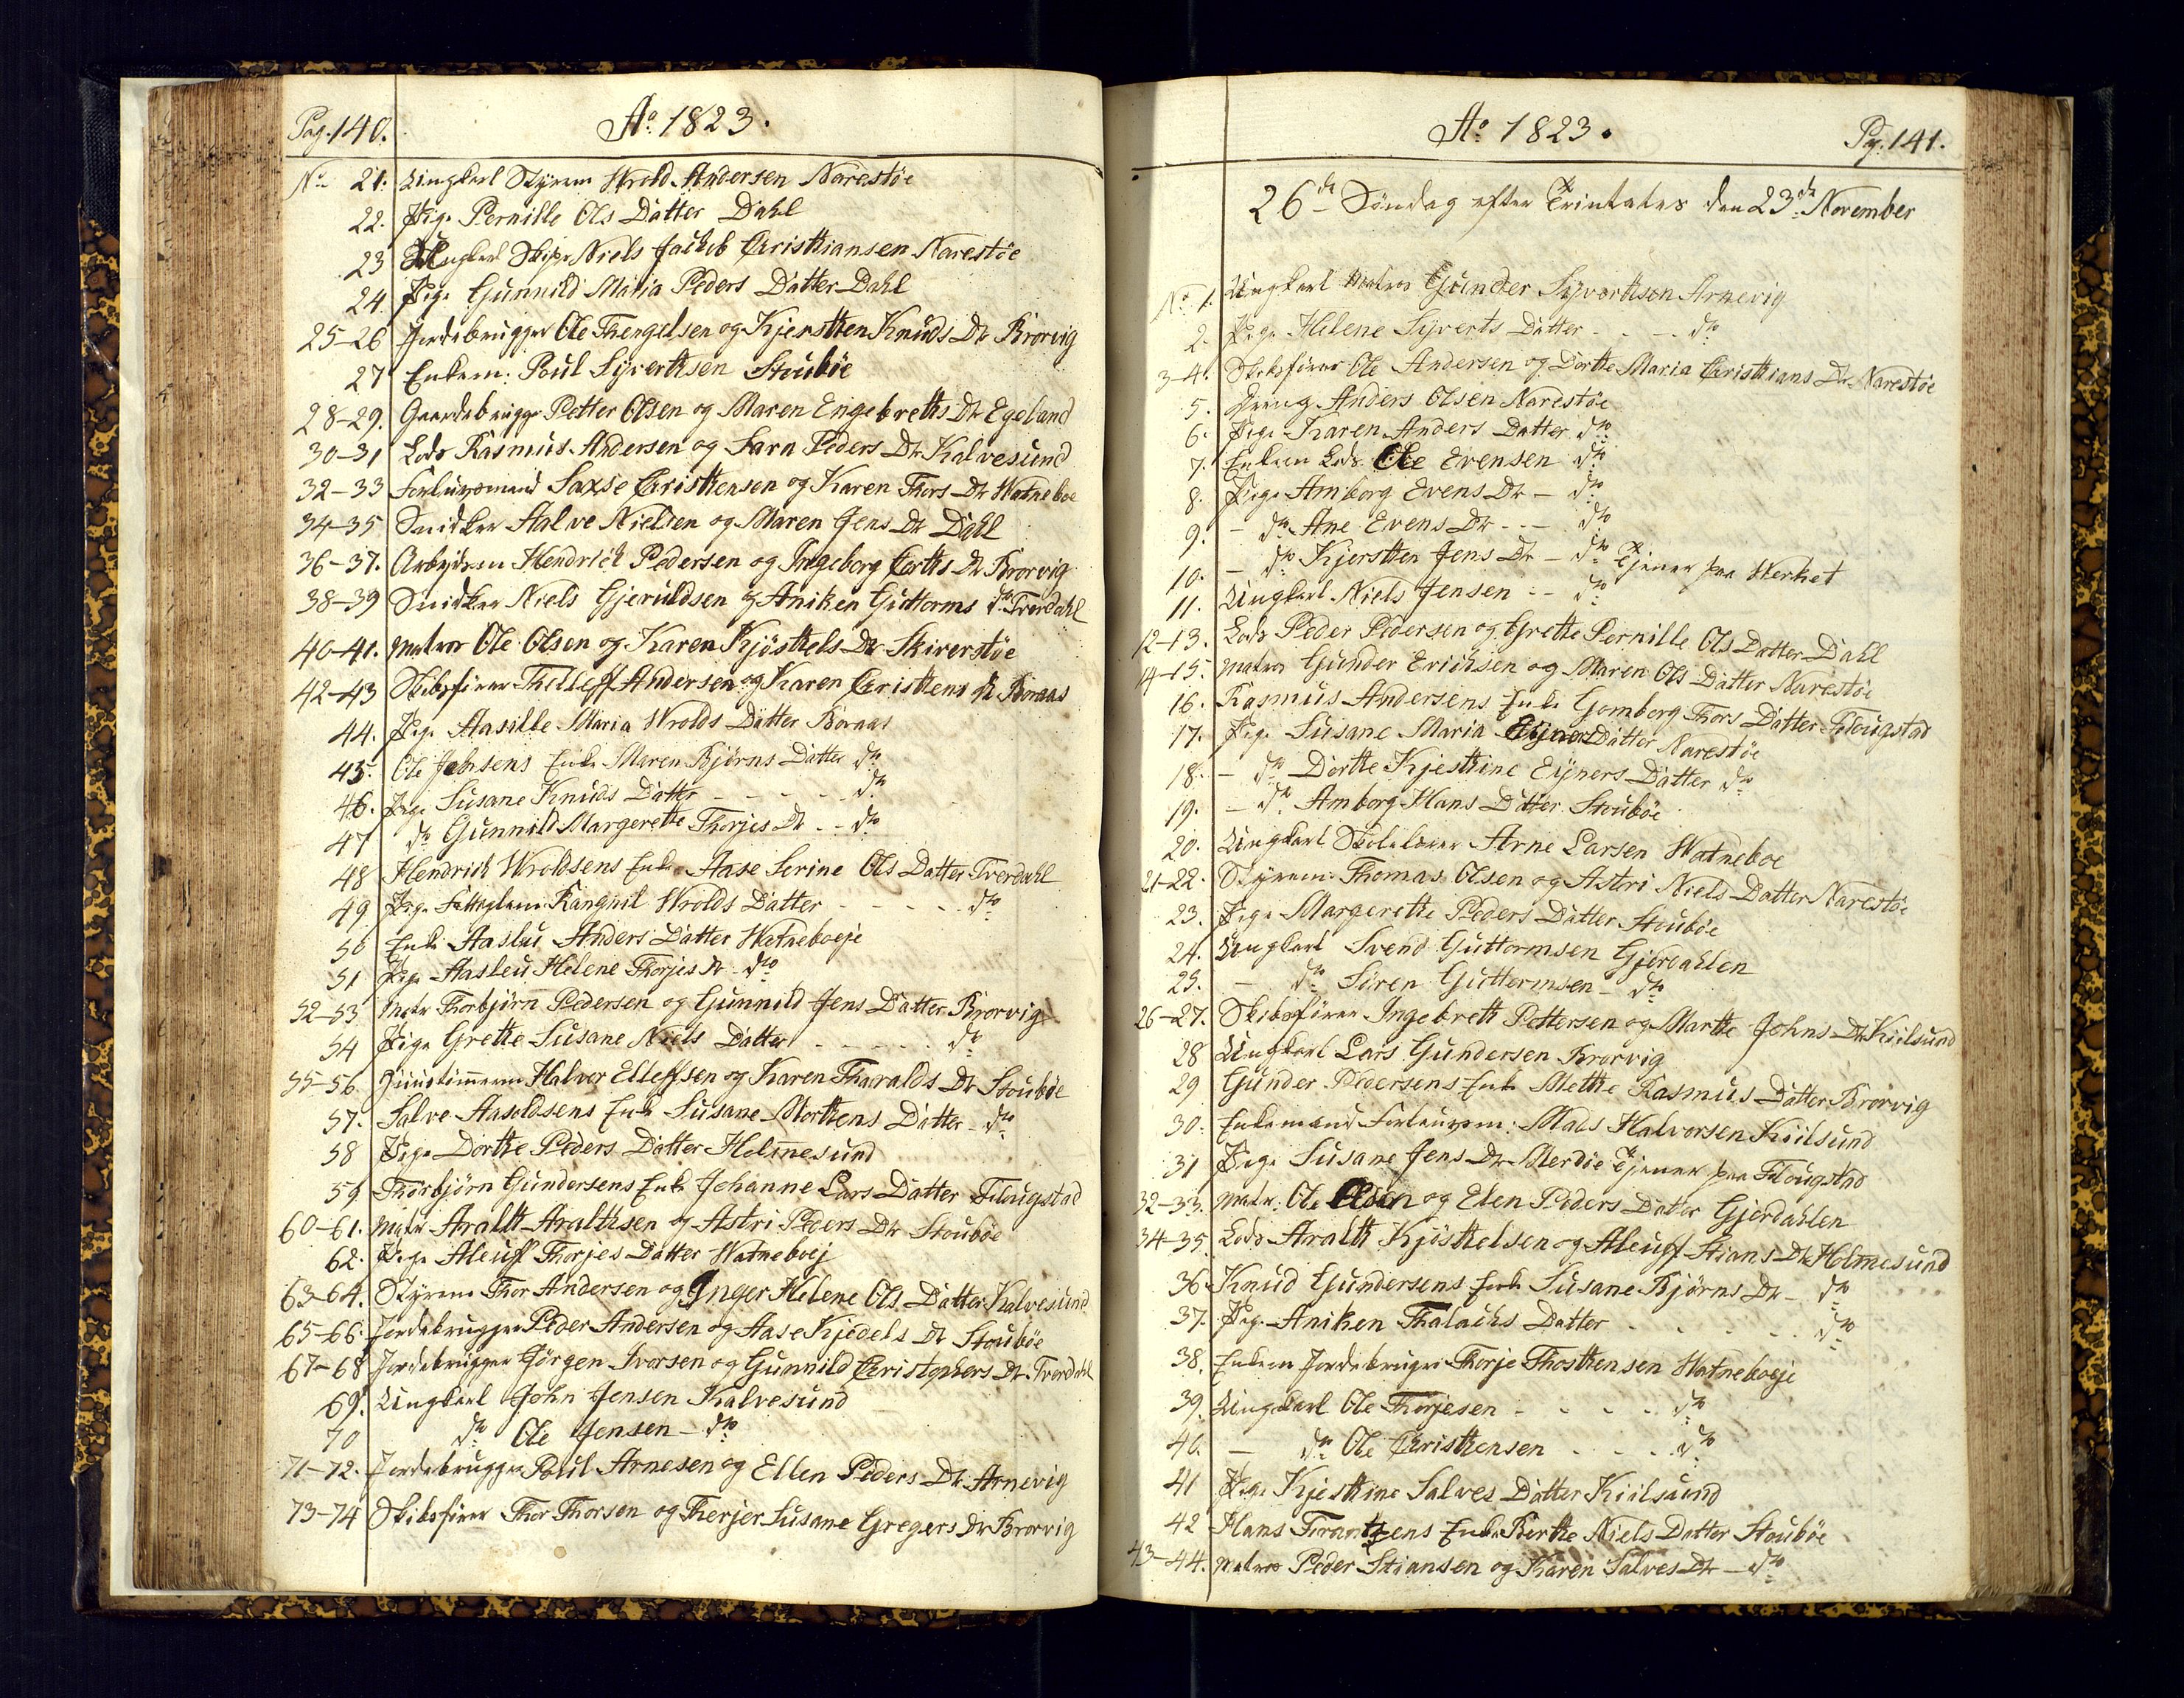 Pag. 140.
Ao. 1823.
No. 21. Ungkarl Styrm Wrold Andersen Narestøe
22. Pige Pernille Ols Datter Dahl
23 Ungkarl Skipr Niels Jackob Christhiansen Narestøe
24. Pige Gunnild Maria Peders Datter Dahl
25-26 Jordebrugger Ole Thengelsen og Kjersthen Knuds Dr Brorvig
27 Enkem: Poul Syverthsen Stoubøe
28-29. Gaardebrugge Petter Olsen og Maren Engebreths Dr Egeland
30-31 Lods Rasmus Andersen og Sara Peders Dr Kalvesund
32-33 Forlovsmand Saxse Christhensen og Karen Thors Dr Watneboe
34-35 Snidker Halve Nielsen og Maren Jens Dr Dahl
36-37. Arbejdsm Hendrich Pedersen og Ingeborg Corths Dr Brorvig
38-39 Snidker Niels Gjeruldsen og Aniken Guttorms dr Tverdahl
40-41. Matros Ole Olsen og Karen Kjösthels Dr Skiverstøe
42-43 Skibsfører Thelleff Andersen og Karen Christhens dr Boraas
44. Pige Aasille Maria Wrolds Datter Boraas
45. Ole Jensens Enke Maren Bjørns Datter do
46. Pige Susane Knuds Datter - - - - do
47 do Gunnild Margerethe Thorjes Dr - - do
48 Hendrich Wroldsens Enke Aase Serine Ols Datter Tverdahl
49 Pige Rangnil Wrolds Datter - - - - - do
50 Enke Aaslau Anders Datter Watneboeje
51 Pige Aasleu Helene Thorjes Dr - do
52-53 Matr Thorbjørn Pedersen og Gunnild Jens Datter Brorvig
54 Pige Grethe Susane Niels Datter - - - - - do
55-56 Huustømmerm Halvor Elleffsen og Karen Tharalds Dr Stoubøe
57. Salve Aasoldsens Enke Susane Morthens Datter - do
58 Pige Dorthe Peders Datter Holmesund
59. Thorbjörn Gundersens Enke Johanne Lars Datter Flougstad
60-61. Matr Aralth Aralthsen og Astri Peders Dr Stoubøe
62. Pige Aleuff Thorjes Datter Watneboej
63-64. Styrm Thor Andersen og Inger Helene Ols Datter Kalvesund
65-66. Jordebrugger Peder Andersen og Aase Kjedels Dr Stoubøe
67-68 Jordebrugger Jörgen Iversen og Gunnild Christophers Dr Tverdahl
69. Ungkarl John Jensen Kalvesund
70 do Ole Jensen - do
71-72. Jordebrugger Poul Arnesen og Ellen Peders Dr Arnevig
73-74 Skibsfører Thor Thorsen og Therjer Susane Gregers Dr Brorvig
Ao 1823.
Pag. 141.
26de Söndag efter Trinitates den 23de November
No 1. Ungkarl Matros Gunder Syverthsen Arnevig
2. Pige Helene Syverts Datter - - - do
3-4. Skibsfører Ole Andersen og Dorthe Maria Christhians Dr Narestøe
5. Dreng Anders Olsen Narestøe
6. Pige Karen Anders Datter do
7. Enkem Lods Ole Evensen do
8. Pige Amborg Evens Dr - do
9. - do Ane Evens Dr - - - do
10. - do Kjersthen Jens Dr - do Tjener paa Werket
11. Ungkarl Niels Jensen - - do
12-13. Lods Peder Pedersen og Grethe Pernille Ols Datter Dahl
14-15. Matros Gunder Erichsen og Maren Ols Datter Narestøe
16. Rasmus Andersens Enke Gomborg Thors Datter Flougstad
17. Pige Susane Maria Eijners Datter Narestøe
18. - do Dorthe Kjesthine Eijners Datter do
19. - do Amborg Hans Datter Stoubøe
20. Ungkarl Skolelærer Arne Larsen Watneboe
21-22. Styrem: Thomas Olsen og Astri Niels Datter Narestøe
23. Pige Margerethe Peders Datter Stoubøe
24. Ungkarl Svend Guttormsen Gjerdahlen
25. - do Sören Guttormsen - do
26-27. Skibsfører Ingebreth Pettersen og Marthe Johns Dr Kiilsund
28 Ungkarl Lars Gundersen Brorvig
29 Gunder Pedersens Enke Methe Rasmus Datter Brorvig
30. Enkemand Forlovsm: Mads Halvorsen Kiilsund
31 Pige Susane Jens Dr Merdøe Tjener paa Flougstad
32-33. Matr: Ole Olsen og Elen Peders Datter Gjerdahlen
34-35. Lods Aralth Kjösthelsen og Aleuff Stians Dr Holmesund
36. Knud Gundersens Enke Susane Bjørns Dr - do
37. Pige Aniken Thalachs Datter - - - - - do
38. Enkem Jordebruger Thorje Thosthensen Watneboeje
39. Ungkarl Ole Thorjesen - - - - do
40. - do Ole Christhensen - - - do
41 Pige Kjesthine Salves Datter Kiilsund
42 Hans Frantzens Enke Berthe Niels Datter Stoubøe
43-44. Matros Peder Stiansen og Karen Salves Dr - do